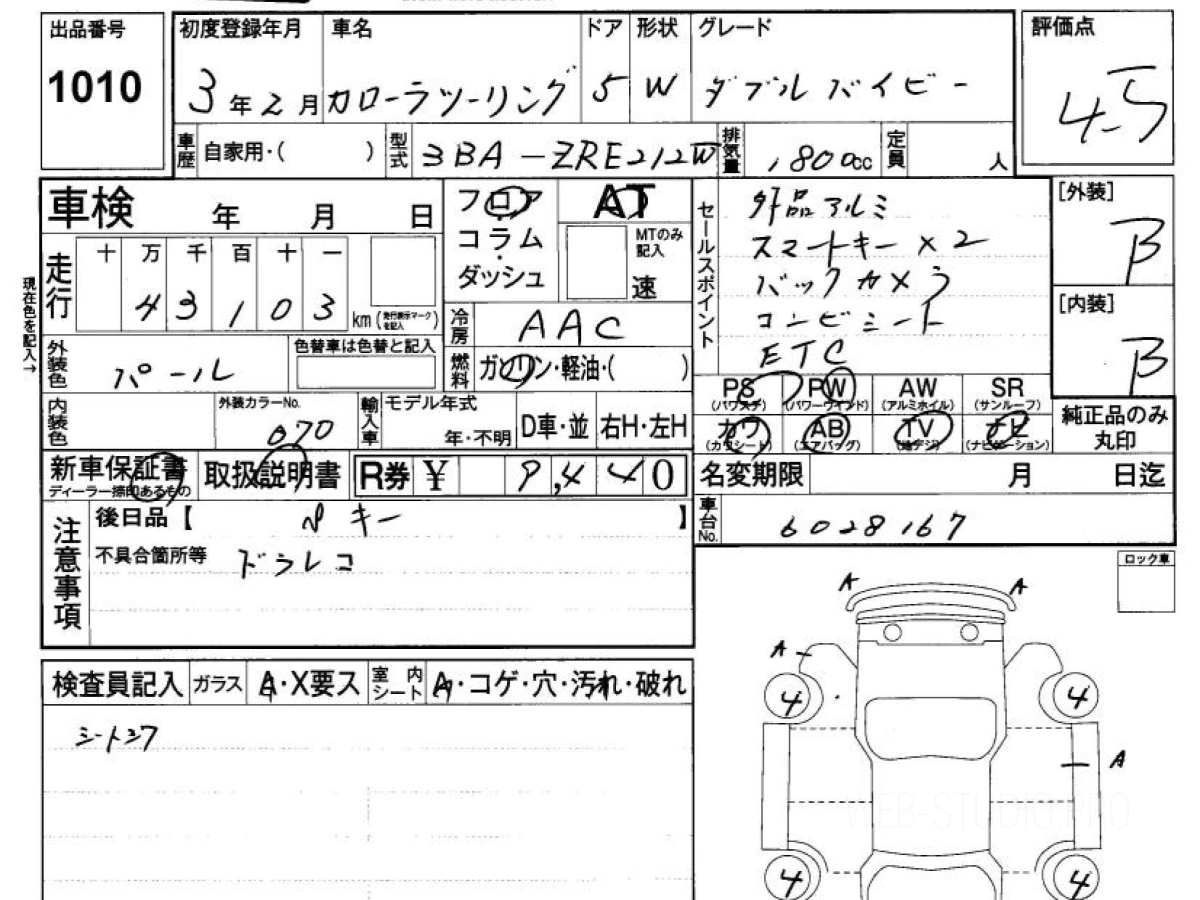 出品番号
1010
初度登録年月
3年2月
車名
カローラツーリング
ドア
5
形状
W
グレード
ダブルバイビー
評価点
4.5
車歴
自家用・( )
型式
3BA-ZRE212W
排気量
1,800cc
定員
人
車検 年 月 日
フロア
コラム
・
ダッシュ
AT
MTのみ記入
速
セールスポイント
外品アルミ
スマートキー×2
バックカメラ
コンビシート
ETC
[外装]
B
[内装]
B
現在色を記入→
走行
十 万 千 百 十 一
4 3 1 0 3
km (走行表示マークを記入)
冷房
AAC
外装色
パール
色替車は色替と記入
燃料
ガソリン・軽油・( )
PS
(パワステ)
PW
(パワーウインド)
AW
(アルミホイル)
SR
(サンルーフ)
カワ
(カワシート)
AB
(エアバッグ)
TV
(地デジ)
ナビ
(ナビゲーション)
純正品のみ丸印
内装色
外装カラーNo.
070
輸入車
モデル年式
年・不明
D車・並
右H・左H
新車保証書
ディーラー捺印あるもの
取扱説明書
R券 ¥ 9,440
名変期限 月 日迄
注意事項
後日品【 キー 】
不具合箇所等 ドラレコ
車台No.
6028167
ロック車
検査員記入
ガラス
A・X要ス
室内シート
A・コゲ・穴・汚れ・破れ
シートシワ
A A
A
4 4
A
4 4
WEB-STUDIO.PRO